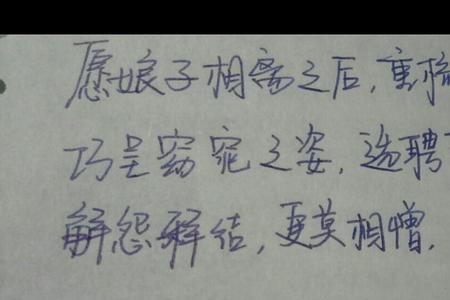 愿娘子相离之后,重梳
巧呈窈窕之姿,选聘
解怨释结,更莫相憎.